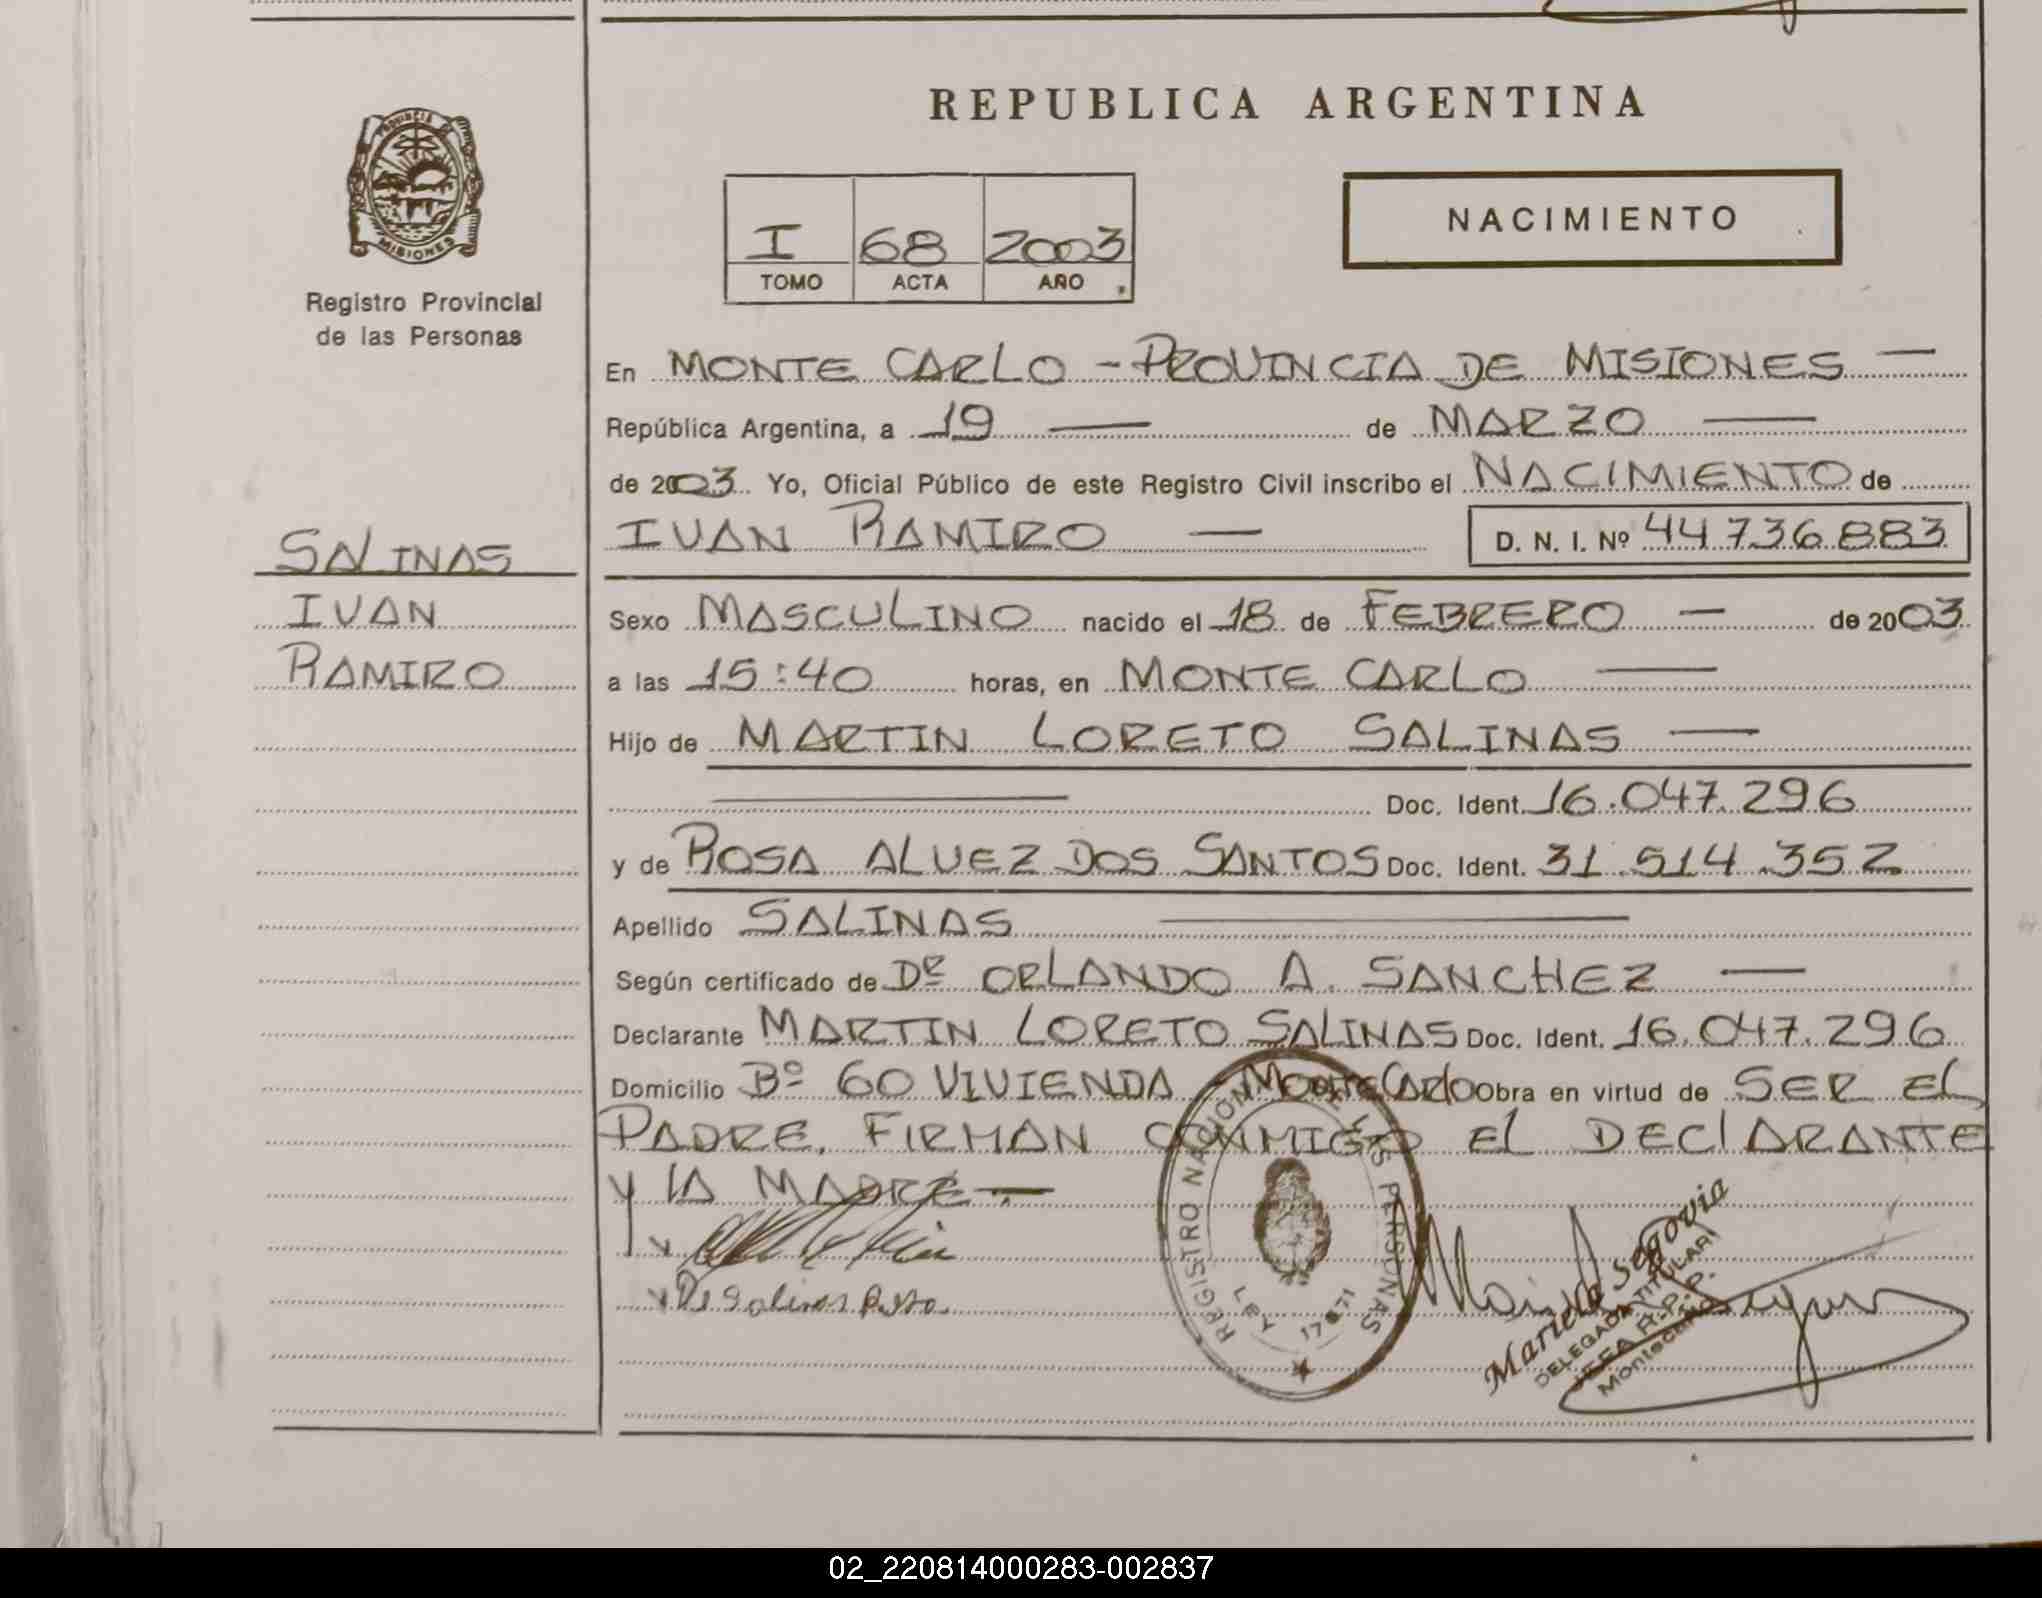 REPUBLICA ARGENTINA
PROVINCIA DE
MISIONES
Registro Provincial
de las Personas
I 68 2003
TOMO ACTA AÑO
NACIMIENTO
En MONTE CARLO - PROVINCIA DE MISIONES —
República Argentina, a 19 — de MARZO —
de 2003 Yo, Oficial Público de este Registro Civil inscribo el NACIMIENTO de
IVAN RAMIRO — D. N. I. Nº 44.736.883
SALINAS
IVAN
RAMIRO
Sexo MASCULINO nacido el 18 de FEBRERO — de 2003
a las 15:40 horas, en MONTE CARLO —
Hijo de MARTIN LORETO SALINAS —
— Doc. Ident. 16.047.296
y de ROSA ALVEZ DOS SANTOS Doc. Ident. 31.514.352
Apellido SALINAS —
Según certificado de Dr ORLANDO A. SANCHEZ —
Declarante MARTIN LORETO SALINAS Doc. Ident. 16.047.296
Domicilio Bº 60 VIVIENDA - Monte Carlo Obra en virtud de SER EL
PADRE. FIRMAN CONMIGO El DEClARANTE
Y lA MADRE —
REGISTRO NACIONAL DE LAS PERSONAS
LEY 17671
Mariela Segovia
DELEGADA TITULAR
JEFA R.P.P.
Montecarlo
02_220814000283-002837